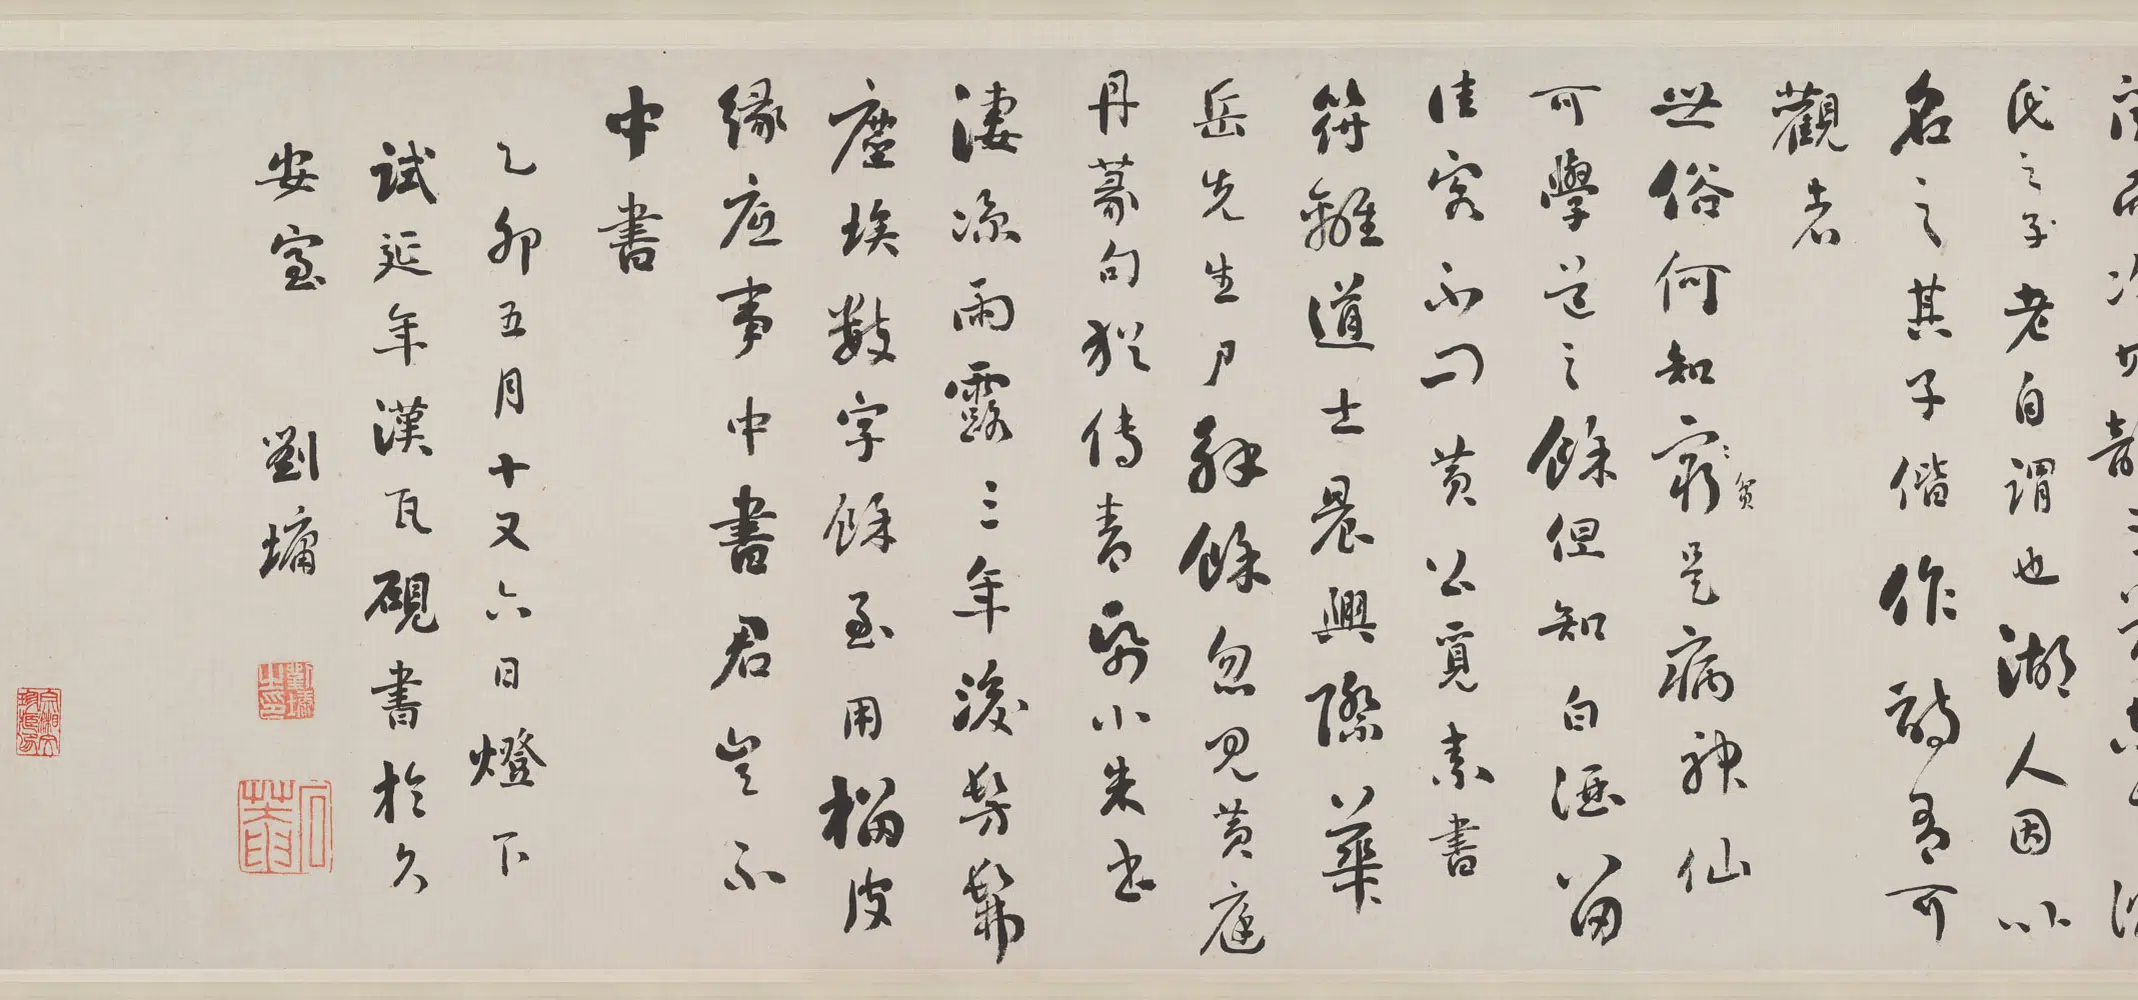 氏之子老自謂也湖人因以
名之其子偕作詩有可
觀者
世俗何知窮貧是病神仙
可學道之餘但知白酒留
佳客不問黃公覓素書
符離道士晨興際華
岳先生尸解餘忽見黃庭
丹篆句猶傳青紙小朱書
淒涼雨露三年後髣髴
塵埃數字餘至用榴皮
緣底事中書君豈不
中書
乙卯五月十又六日燈下
試延年漢瓦硯書於久
安室 劉墉
劉墉之印
石菴